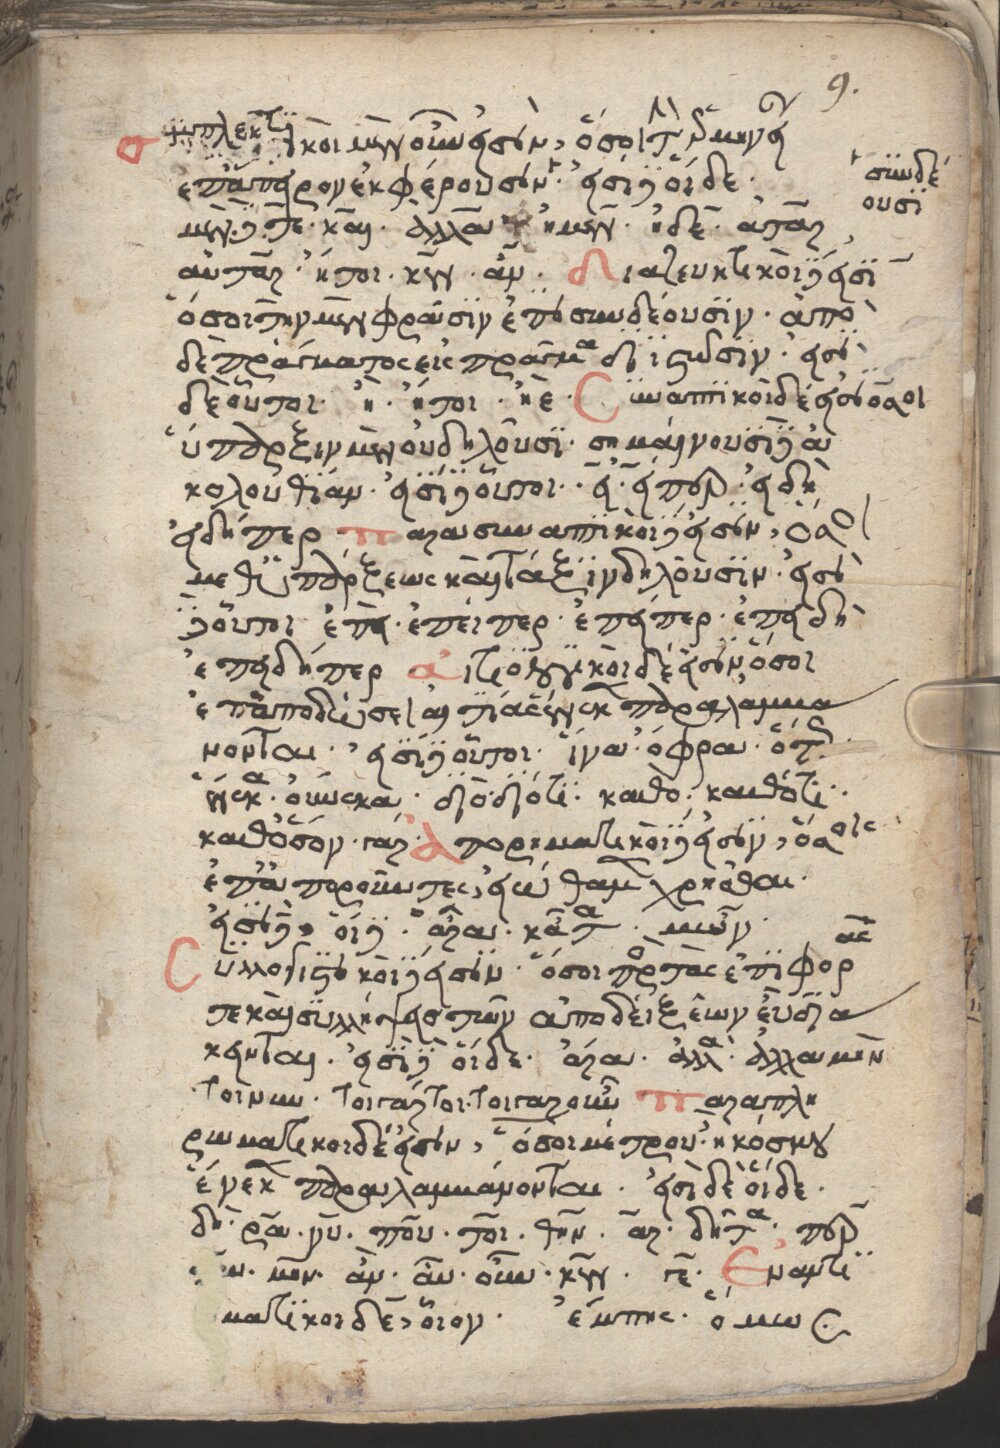 9.
συμπλεκτικοὶ μὲν οὖν εἰσὶν, ὅσοι τὴν ἑρμηνεί
ἐπάπειρον ἐκφέρουσιν· εἰσὶ δὲ οἵδε·
συνδέ
ουσι
μέν· δέ· τέ· καί· ἀλλά· ἠμέν· ἠδέ· ἀτάρ
αὐτάρ· ἤτοι· κέν· ἄν· διαζευκτικοὶ δὲ εἰσὶ
ὅσοι τὴν μὲν φράσιν ἐπισυνδέουσιν· ἀπὸ
δὲ πράγματος εἰς πράγμα διϊστῶσιν· εἰσὶ
δὲ οὗτοι· ἤ· ἤτοι· ἠέ· Συναπτικοὶ δέ εἰσιν ὅσοι
ὕπαρξιν μὲν οὐ δηλοῦσι· σημαίνουσι δὲ ἀ
κολουθίαν· εἰσὶ δὲ οὗτοι· εἰ· εἴπερ· εἰδὴ
εἰδήπερ παρασυναπτικοὶ δὲ εἰσὶν, ὅσοι
μεθ' ὑπάρξεως καὶ τάξιν δηλοῦσιν· εἰσὶ
δὲ οὗτοι ἐπεί· ἐπείπερ· ἐπείπερ· ἐπειδὴ
ἐπειδήπερ αἰτιολογικοὶ δέ εἰσιν ὅσοι
ἐπ' ἀποδόσει αἰτίας ἕνεκεν παραλαμβά
νονται· εἰσὶ δὲ οὗτοι· ἵνα· ὄφρα· ὅτι·
ἕνεκα· οὕνεκα· διὸ· διότι· καθό· καθότι·
καθόσον· γάρ· Ἀπορηματικοὶ δὲ εἰσὶν, ὅσοις
ἐπαποροῦντες, εἰώθαμεν χρῆσθαι·
εἰσὶ δὲ, οἵδε· ἆρα· κᾆτα· μῶν·
Συλλογιστικοὶ δὲ εἰσὶν· ὅσοι πρὸς τὰς ἐπιφοράς
τε καὶ συλλήψεις τῶν ἀποδείξεων εὖ διά
κεινται· εἰσὶ δὲ οἵδε· ἄρα· ἀλλά· ἀλλαμὴν
τοίνυν· τοιγάρτοι· τοιγαροῦν παραπλη
ρωματικοὶ δέ εἰσιν, ὅσοι μέτρου· ἢ κόσμου
ἕνεκεν παραλαμβάνονται· εἰσὶ δὲ οἵδε·
δή· ῥά· νύ· πού· τοί· θήν· ἄρ· δῆτα· πέρ
μήν· ἄν· αὖ· οὖν· κέν· γέ· Ἐναντι
ματικοὶ δὲ, οἷον· ἔμπης· ὅμως·